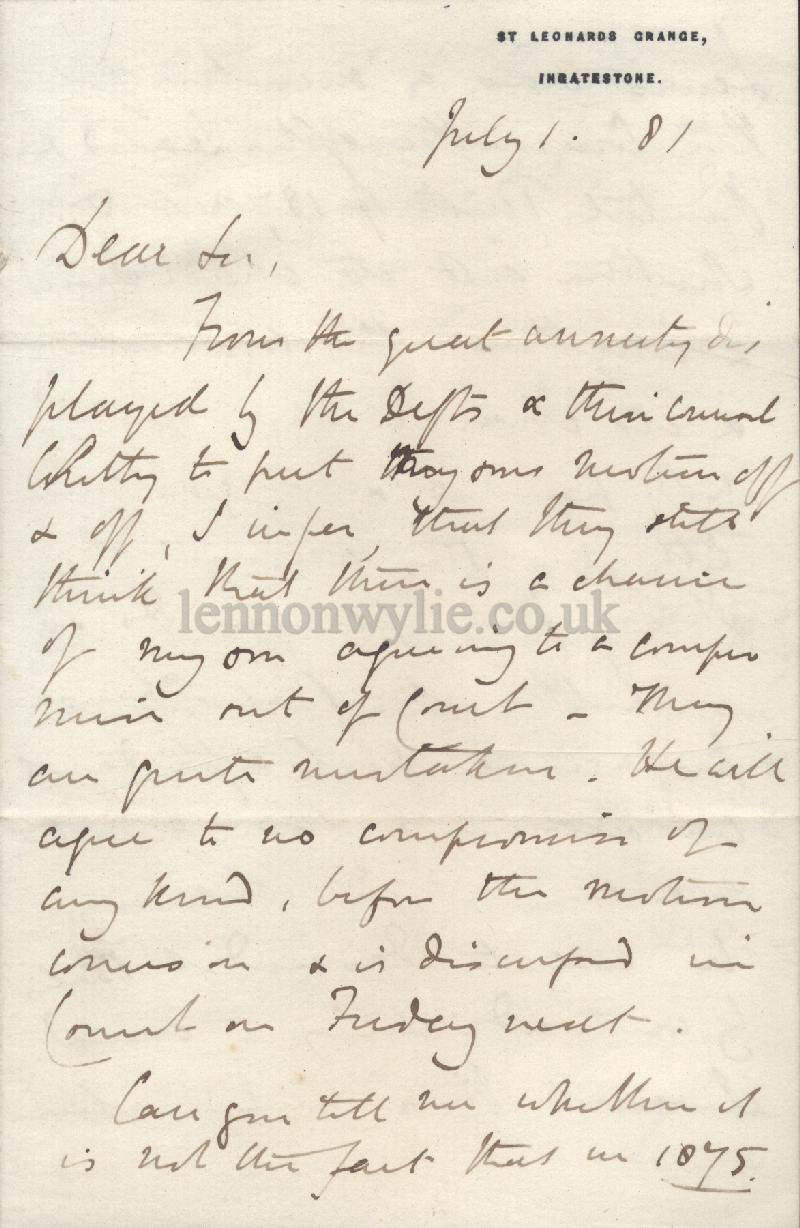 ST LEONARDS GRANGE,
INGATESTONE.
July 1. 81
Dear Sir,
From the great anxiety dis
played by the Defts & their Counsel
to put my sons motion off
& off, I infer, that they still
think that there is a chance
of my son agreeing to a compro
mise out of Court - They
are quite mistaken. He will
agree to no compromise of
any kind, before the motion
comes on & is discussed in
Court on Friday next.
Can you tell me whether it
is not the fact that in 1875.
lennonwylie.co.uk